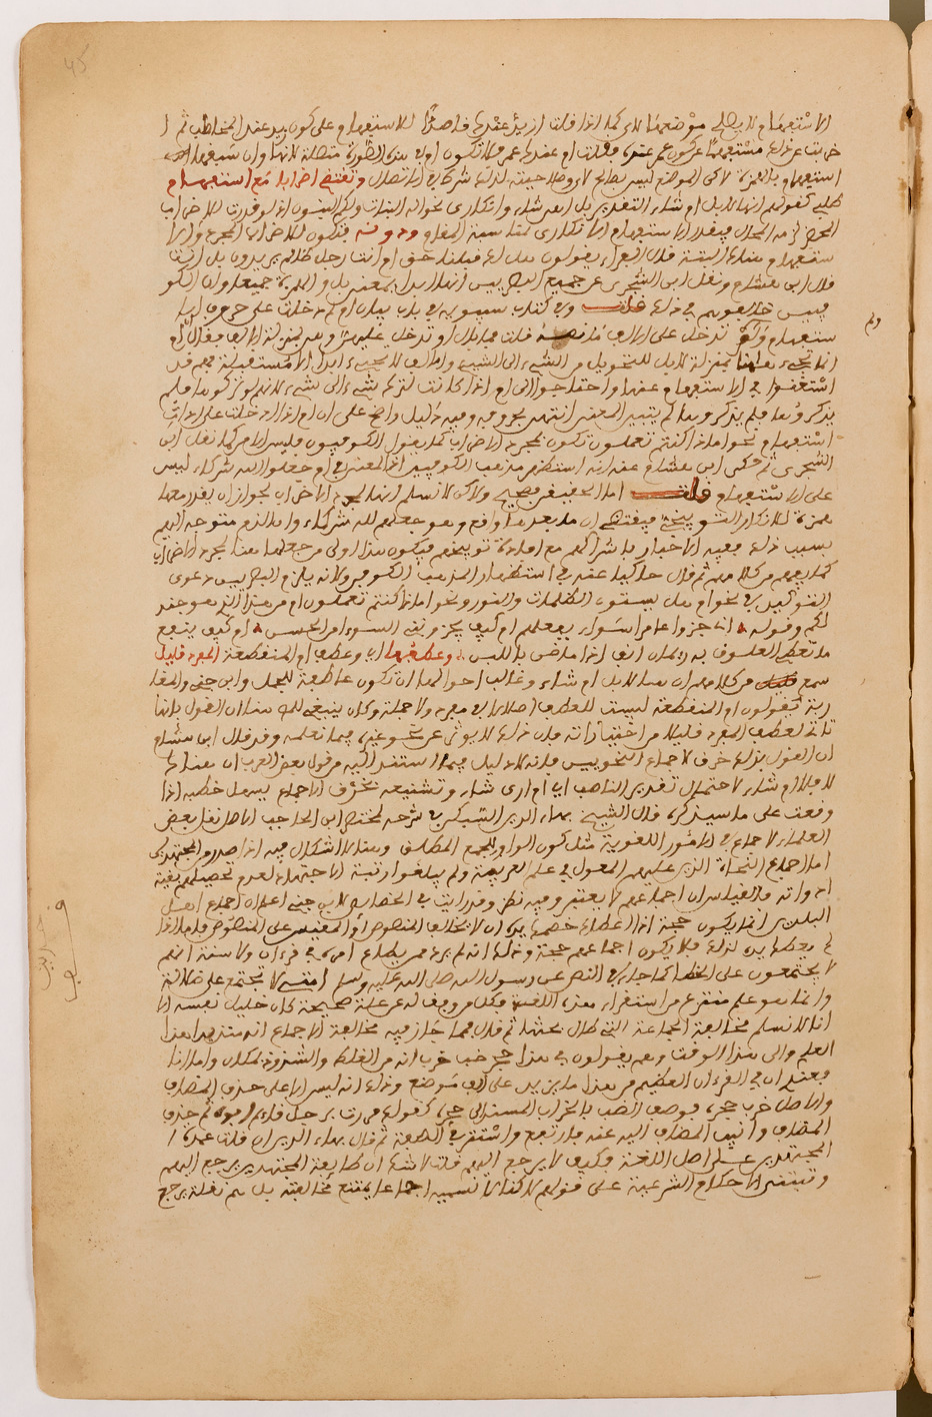 الاستفهام لا يصلح موضعها لاي كما اذا قلت ازيد عندك قاصدا للاستفهام على كون زيد عند المخاطب ثم ا
ضربت عن ذلك مستفهما عن كون عمرو عنده فقلت ام عندك عمرو فلا تكون ام في هذه الصورة متصلة لانها وان سبقها
استفهام بالهمزة لاكن الموضع ليس بصالح لاي وصلاحيته لذلك شرط في الاتصال وتقتضي اضرابا مع استفهام
كقولهم انها لابل ام شاء التقدير بل اهي شاء وانكاري نحو ام له البنات ولكم البنون اذ لو قدرت للاضراب
المحض لزم المحال فيقدر الاستفهام الانكاري ودونه فتكون للاضراب المجرد والا
ستفهام قال الفراء يقولون هل لك قبلنا حق ام انت رجل ظالم يريدون بل انت
قال ابن هشام ونقل ابن الشجري عن جميع البصريين انها ابدا بمعنى بل والهمزة جميعا وان الكو
فيين خالفوهم في ذلك قلت وفي كتاب سيبويه في باب بيان ام لم دخلت على حروف الا
ستفهام ولم تدخل على الالف
انما تجيء هاهنا بمنزلة لابل للتحويل من الشيء الى الشيء والالف لا تجيء ابدا الا مستقبلة فهم قد
استغنوا في الاستفهام عنها واحتاجوا الى ام اذا كانت لترك شيء الى شيء لانهم لو تركوها فلم
يذكروها لم يتبين المعنى انتهى بحروفه وفيه دليل واضح على ان ام اذا دخلت على اداة
استفهام نحو اماذا كنتم تعملون تكون لمجرد الاضراب كما يقول الكوفيون وليس الامر كما نقل ابن
الشجري ثم حكى ابن هشام عنه انه استظهر مذهب الكوفيين اذ المعنى في ام جعلوا لله شركاء ليس
على الاستفهام قلت اما الحقيقي فصحيح ولاكن لا نسلم انها لمجرد الاضراب لجواز ان يقدر معها
همزة للانكار التوبيخي فيقتضي ان ما بعدها واقع وهو جعلهم لله شركاء وان اللوم متوجه اليهم
بسبب ذلك ففيه الاخبار باشراكهم مع افادة توبيخهم فيكون هذا اولى من جعلها هنا لمجرد الاضراب
كما يفهم من كلامهم ثم قال حاكيا عنه في استظهار المذهب الكوفي ولانه يلزم البصريين دعوى
التوكيد في نحو ام هل يستوي الظلمات والنور ونحو اماذا كنتم تعملون ام من هذا الذي هو جند
لكم وقوله انى جزوا عامرا سوءا بفعلهم ام كيف يجزونني السوءى من الحسن ام كيف ينفع
ما تعطي العلوق به رئمان انف اذا ما ضن باللبن وعطفها اي وعطف ام المنقطعة المفرد قليل
سمع من كلامهم ان هنا لابل ام شاء وغالب احوالها ان تكون عاطفة للجمل وابن جني والمغا
ربة يقولون ام المنقطعة ليست للعطف اصلا لا في مفرد ولا جملة وكان ينبغي للمصنف ان القول بانها
تاتي لعطف المفرد قليلا من اختياراته فان ذلك لا يوثر عن نحوي غيره فيما نعلمه وقد قال ابن هشام
ان القول بذلك خرق لاجماع النحويين فانه لا دليل فيما استند اليه من قول بعض العرب ان هناك
لابلا ام شاء لاحتمال تقدير الناصب اي ام ارى شاء وتشنيعه بخرق الاجماع يسهل خطبه اذا
وقفت على ما سيذكر قال الشيخ بهاء الدين السبكي في شرحه لمختصر ابن الحاجب الاصل نقل بعض
العلماء الاجماع في الامور اللغوية مثل كون الواو للجمع المطلق وهذا لا اشكال فيه اذا صدر من المجتهدين
اما اجماع النحاة الذين عليهم المعول في علم العربية ولم يبلغوا رتبة الاجتهاد لعدم تحصيلهم بقية
ادواته فالقياس ان اجماعهم لا يعتبر وفيه نظر وقد رايت في الخصائص لابن جني اعلم ان اجماع اهل
البلدين انما يكون حجة اذا اعطاك خصمك يده ان لا يخالف المنصوص او المقيس على المنصوص فاما اذا
لم يعط يده لذلك فلا يكون اجماعهم حجة وذلك انه لم يرد ممن يطاع امره في قرءان ولا سنة انهم
لا يجتمعون على الخطا كما جاء في النص عن رسول الله صلى الله عليه وسلم امتي لا تجتمع على ضلالة
وانما هو علم منتزع من استقراء هذه اللغة فكل من فرق له عن علة صحيحة كان خليل نفسه الا
اننا لا نسلم مخالفة الجماعة التي طال بحثها ثم قال فمما جاز فيه مخالفة الاجماع انه منذ بدا هذا
العلم والى هذا الوقت وهم يقولون في هذا جحر ضب خرب انه من الغلط والشذوذ بمكان واما انا
فعندي ان في القرءان العظيم من هذا ما يزيد على الف موضع وذلك انه ليس الا على حذف المضاف
والاصل خرب جحره فوصف الضب بالخراب المسند الى جحره كقولك مررت برجل قائم ابوه ثم حذف
المضاف وانيب المضاف اليه عنه فارتفع واستتر في الصفة ثم قال بهاء الدين ان قلت عمدة ا
لمجتهدين على اهل اللغة فكيف لا يرجع اليهم قلت لا شك ان طائفة المجتهدين يرجع اليهم
وتبتنى الاحكام الشرعية على قولهم لاكنا لا نسميه اجماعا يمتنع مخالفته بل هم نقلة يرجع